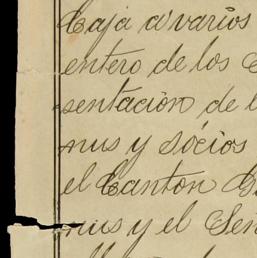 Caja a varios
entero de los
sentación de l
mus y sócios
el Canton
mus y el Señ